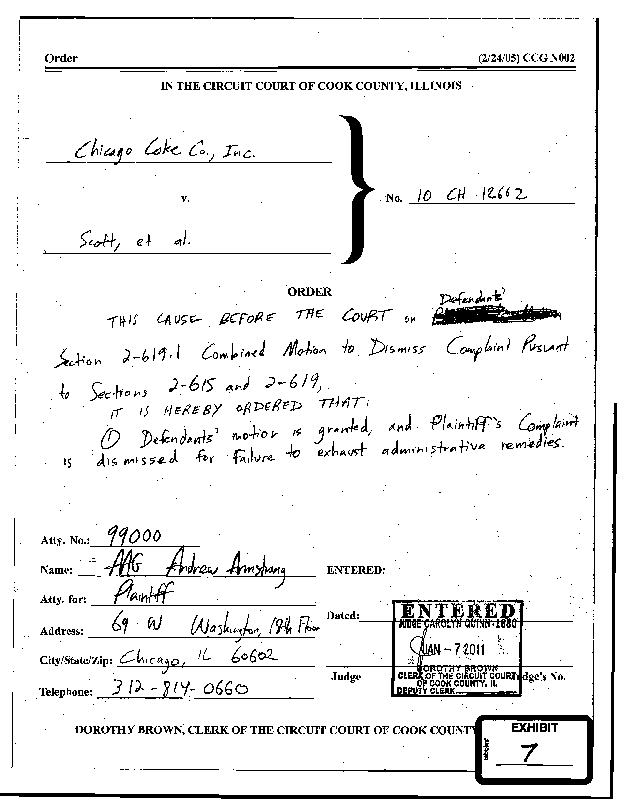 Order (2/24/05) CCG N002
IN THE CIRCUIT COURT OF COOK COUNTY, ILLINOIS
Chicago Coke Co., Inc.
v.
No. 10 CH 12662
Scott, et al.
ORDER
Defendants'
THIS CAUSE BEFORE THE COURT on
Section 2-619.1 Combined Motion to Dismiss Complaint Pursuant
to Sections 2-615 and 2-619,
IT IS HEREBY ORDERED THAT:
① Defendants' motion is granted, and Plaintiff's Complaint
is dismissed for failure to exhaust administrative remedies.
Atty. No.: 99000
Name: AAG Andrew Armstrong
ENTERED:
Atty. for: Plaintiff
Address: 69 W Washington, 18th Floor
Dated:
ENTERED
JUDGE CAROLYN QUINN-1880
JAN - 7 2011
DOROTHY BROWN
CLERK OF THE CIRCUIT COURT
OF COOK COUNTY, IL
DEPUTY CLERK
City/State/Zip: Chicago, IL 60602
Judge Judge's No.
Telephone: 312-814-0660
DOROTHY BROWN, CLERK OF THE CIRCUIT COURT OF COOK COUNTY
EXHIBIT
7